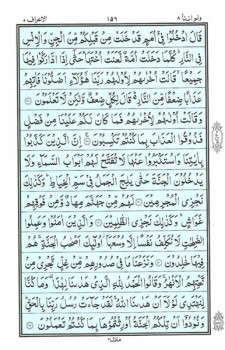 ولو اننا ٨ ١٥٦ الاعراف ٧
قَالَ ادْخُلُوْا فِيْٓ اُمَمٍ قَدْ خَلَتْ مِنْ قَبْلِكُمْ مِّنَ الْجِنِّ وَالْاِنْسِ
فِي النَّارِ كُلَّمَا دَخَلَتْ اُمَّةٌ لَّعَنَتْ اُخْتَهَا حَتّٰٓى اِذَا ادَّارَكُوْا فِيْهَا
جَمِيْعًا قَالَتْ اُخْرٰىهُمْ لِاُوْلٰىهُمْ رَبَّنَا هٰٓؤُلَآءِ اَضَلُّوْنَا فَاٰتِهِمْ
عَذَابًا ضِعْفًا مِّنَ النَّارِ قَالَ لِكُلٍّ ضِعْفٌ وَّلٰكِنْ لَّا تَعْلَمُوْنَ
وَقَالَتْ اُوْلٰىهُمْ لِاُخْرٰىهُمْ فَمَا كَانَ لَكُمْ عَلَيْنَا مِنْ فَضْلٍ
فَذُوْقُوا الْعَذَابَ بِمَا كُنْتُمْ تَكْسِبُوْنَ اِنَّ الَّذِيْنَ كَذَّبُوْا
بِاٰيٰتِنَا وَاسْتَكْبَرُوْا عَنْهَا لَا تُفَتَّحُ لَهُمْ اَبْوَابُ السَّمَآءِ وَلَا
يَدْخُلُوْنَ الْجَنَّةَ حَتّٰى يَلِجَ الْجَمَلُ فِيْ سَمِّ الْخِيَاطِ وَكَذٰلِكَ
نَجْزِي الْمُجْرِمِيْنَ لَهُمْ مِّنْ جَهَنَّمَ مِهَادٌ وَّمِنْ فَوْقِهِمْ
غَوَاشٍ وَكَذٰلِكَ نَجْزِي الظّٰلِمِيْنَ وَالَّذِيْنَ اٰمَنُوْا وَعَمِلُوا
الصّٰلِحٰتِ لَا نُكَلِّفُ نَفْسًا اِلَّا وُسْعَهَآ اُولٰٓئِكَ اَصْحٰبُ الْجَنَّةِ هُمْ
فِيْهَا خٰلِدُوْنَ وَنَزَعْنَا مَا فِيْ صُدُوْرِهِمْ مِّنْ غِلٍّ تَجْرِيْ مِنْ
تَحْتِهِمُ الْاَنْهٰرُ وَقَالُوا الْحَمْدُ لِلّٰهِ الَّذِيْ هَدٰىنَا لِهٰذَا وَمَا كُنَّا
لِنَهْتَدِيَ لَوْلَآ اَنْ هَدٰىنَا اللّٰهُ لَقَدْ جَآءَتْ رُسُلُ رَبِّنَا بِالْحَقِّ
وَنُوْدُوْٓا اَنْ تِلْكُمُ الْجَنَّةُ اُوْرِثْتُمُوْهَا بِمَا كُنْتُمْ تَعْمَلُوْنَ
منزل ٢